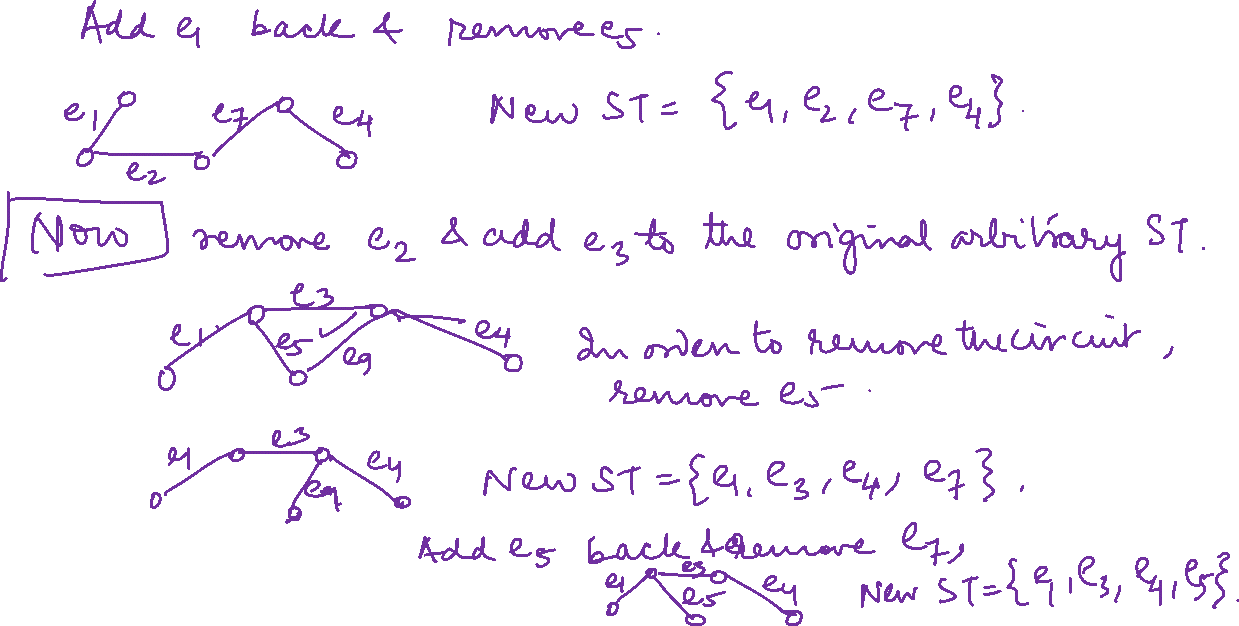 Add e1 back & remove e5.
e1 e7 e4 New ST = {e1, e2, e7, e4}.
e2
Now remove e2 & add e3 to the original arbitrary ST.
e3
e1 e5 e9 e4 In order to remove the circuit,
remove e5.
e1 e3 e4 New ST = {e1, e3, e4, e7}.
e9
Add e5 back & remove e7,
e1 e3 e4 New ST = {e1, e3, e4, e5}.
e5